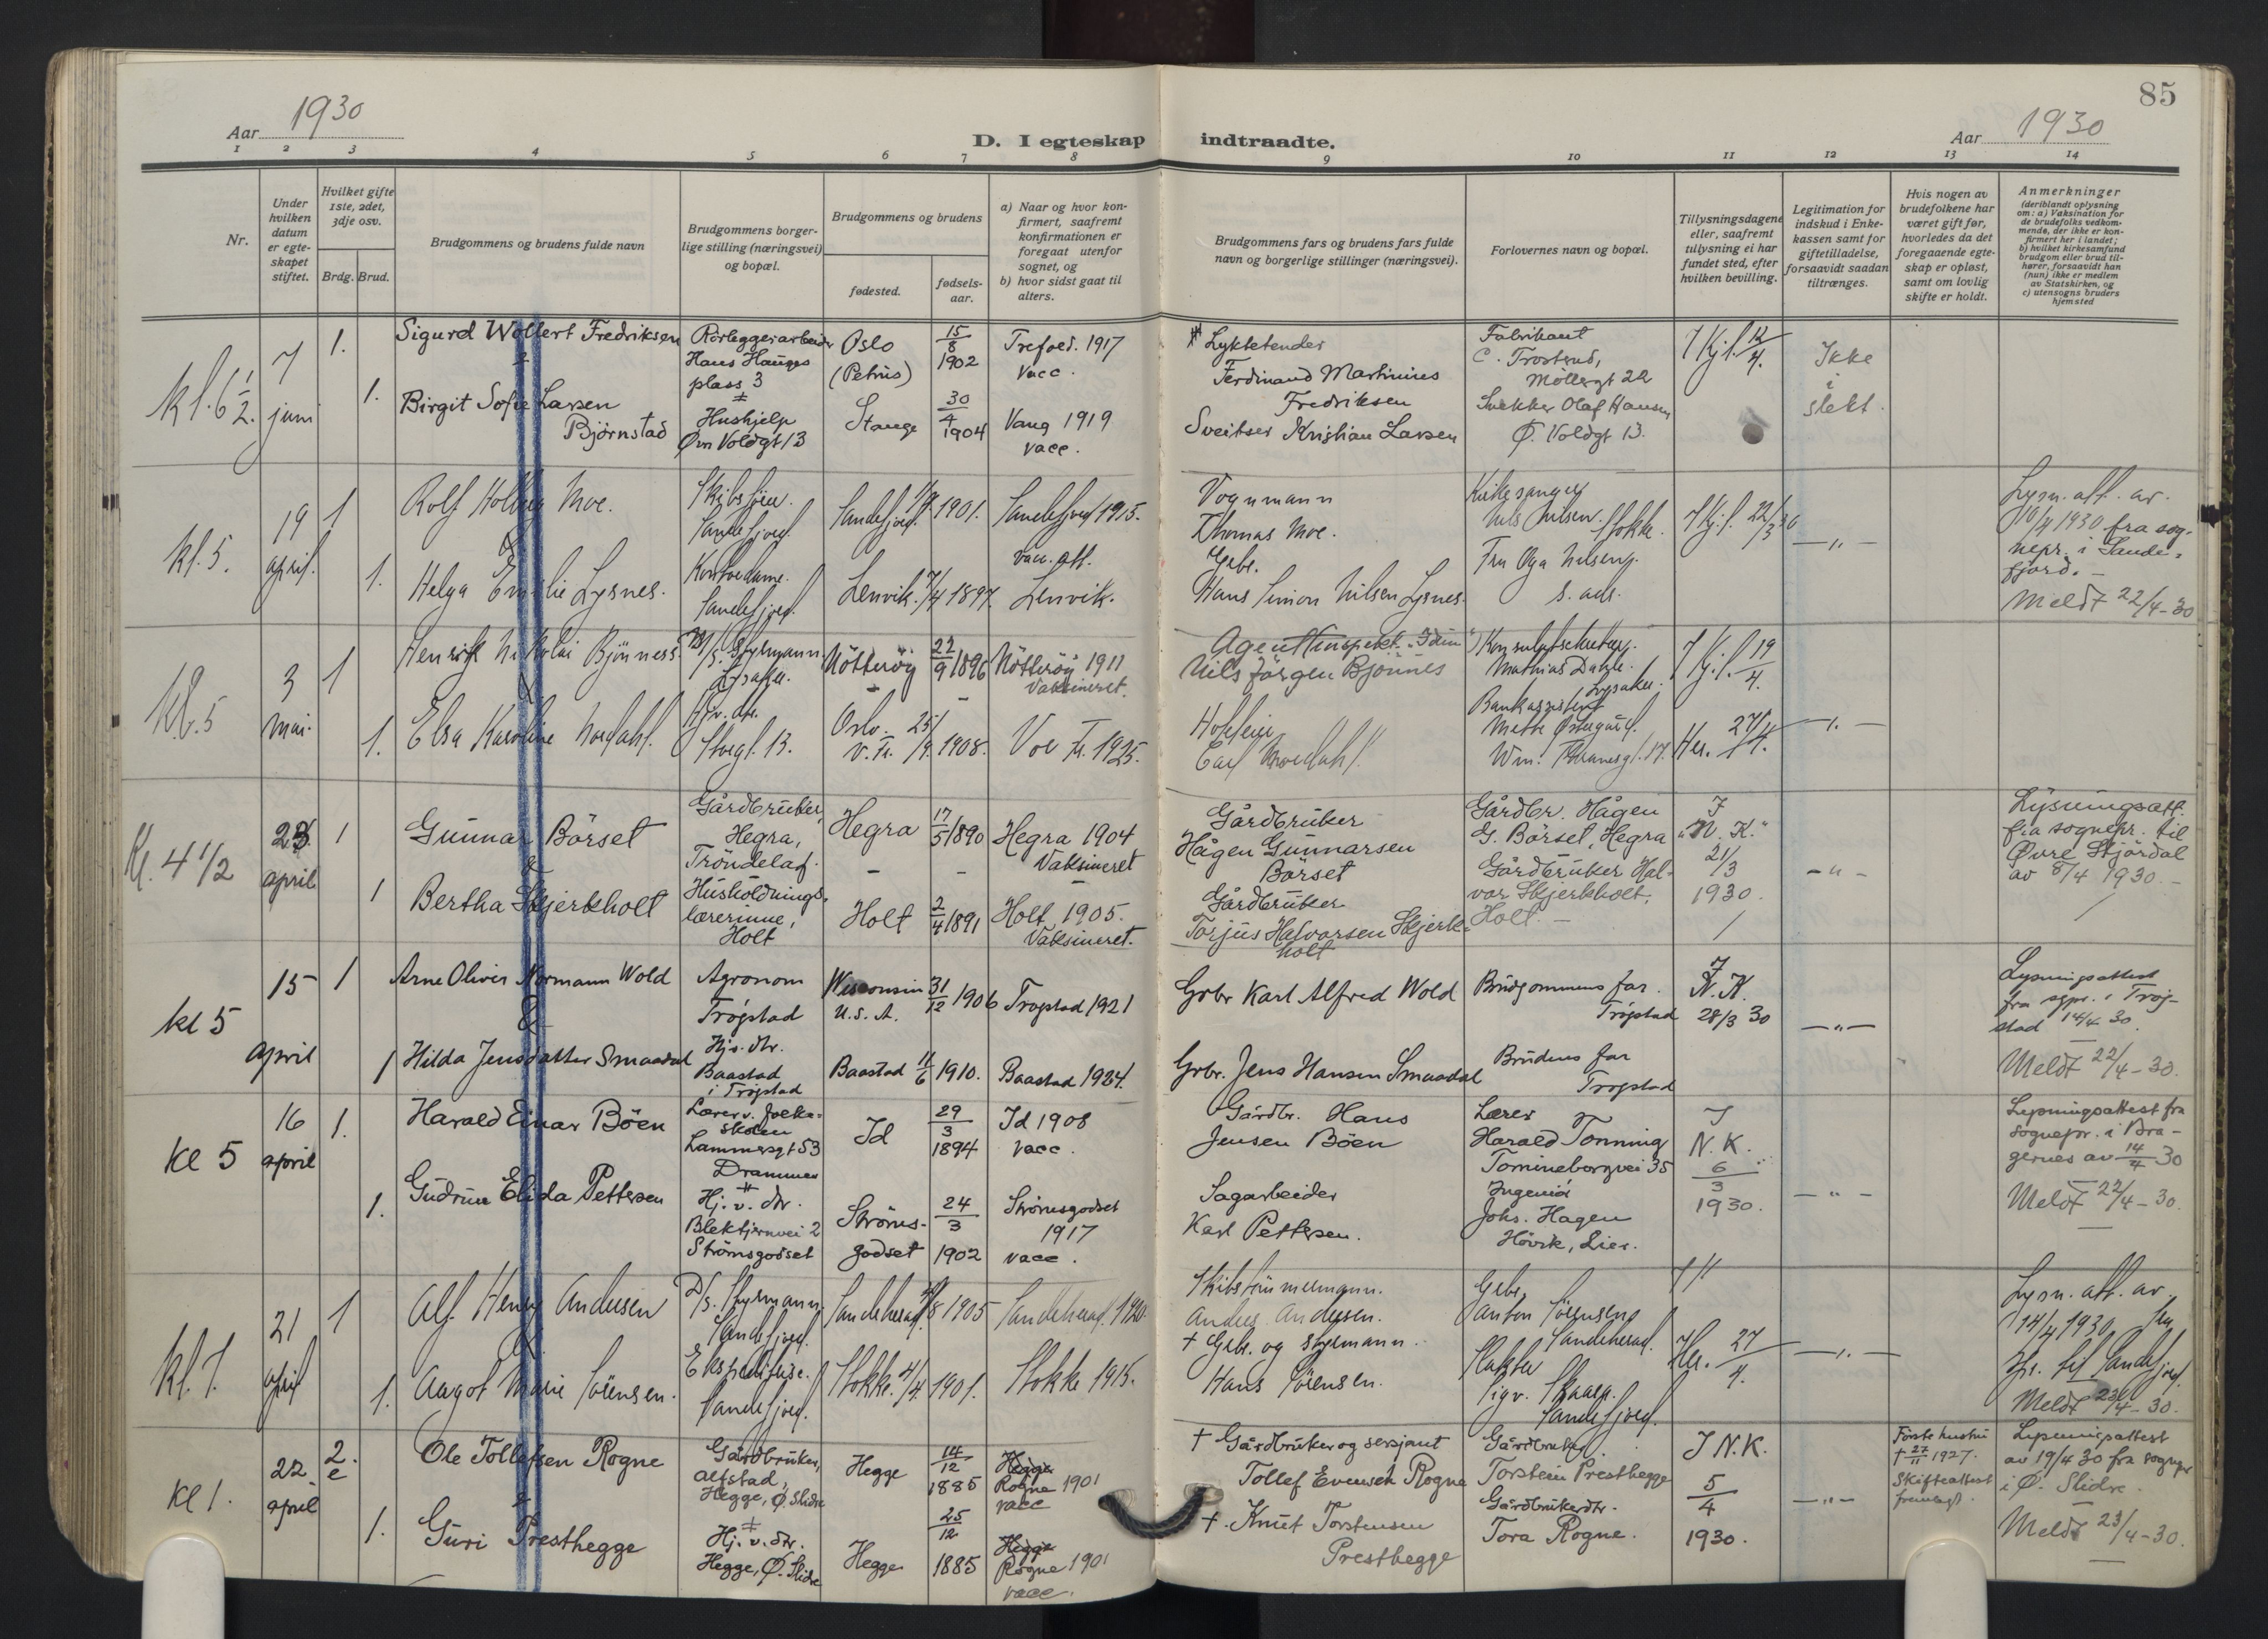 85
Aar 1930
D. I egteskap indtraadte.
Aar 1930
1 2 3 4 5 6 7 8 9 10 11 12 13 14
Nr.
Under hvilken datum er egte- skapet stiftet.
Hvilket gifte 1ste, 2det, 3dje osv.
Brdg. Brud.
Brudgommens og brudens fulde navn
Brudgommens borger- lige stilling (næringsvei) og bopæl.
Brudgommens og brudens
fødested.
fødsels- aar.
a) Naar og hvor kon- firmert, saafremt konfirmationen er foregaat utenfor sognet, og
b) hvor sidst gaat til alters.
Brudgommens fars og brudens fars fulde navn og borgerlige stillinger (næringsvei).
Forlovernes navn og bopæl.
Tillysningsdagene eller, saafremt tillysning ei har fundet sted, efter hvilken bevilling.
Legitimation for indskud i Enke- kassen samt for giftetilladelse, forsaavidt saadan tiltrænges.
Hvis nogen av brudefolkene har været gift før, hvorledes da det foregaaende egte- skap er opløst, samt om lovlig skifte er holdt.
Anmerkninger (deriblandt oplysning om: a) Vaksination for de brudefolks vedkom- mende, der ikke er kon- firmert her i landet; b) hvilket kirkesamfund brudgom eller brud til- hører, forsaavidt han (hun) ikke er medlem av Statskirken, og c) utensogns bruders hjemsted
kl. 6 1/2.
7 juni
1.
Sigurd Wollert Fredriksen
Rørleggerarbeider
Hans Hauges
plass 3
Oslo
(Petrus)
15/8 1902
Trefold. 1917
Vacc.
Lyktetender
Ferdinand Martinius
Fredriksen
Fabrikant
C. Trostrud,
Möllergt 22
12/4.
Ikke
i
slekt.
1.
Birgit Sofie Larsen
Björnstad
Hushjelp
Øvr Voldgt 13
Stange
30/4 1904
Vang 1919
vacc.
Sveitser Kristian Larsen
Snekker Olaf Hansen
Ø. Voldgt 13.
kl. 5.
19 april.
1
Rolf Holberg Moe.
Sandefjord.
Sandefjord.
1901.
Sandefjord 1915.
vacc. att.
Vognmann
Thomas Moe.
Kirkesanger
Nils Nilsen. Stokke.
22/3 30
Lysn. att. av.
10/4 1930 fra sog-
nepr. i Sande-
fjord. -
Meldt 22/4-30
1.
Helga Emilie Lysnes.
Sandefjord.
Lenvik.
7/4 1897.
Lenvik.
Gbr.
Hans Simon Nilsen Lysnes.
Fru Olga Nilsen
s. ads.
kl. 5
3 mai.
1
Henrik Nikolai Bjönness.
Styrmann.
Lysaker.
Nötteröy
22/9 1896
Nötteröy 1911
Vaksineret.
Nils Jörgen Bjönnes
Konsulatsekretær
Mathias Dahle.
Lysaker.
19/4.
1.
Elsa Karoline Nordahl.
Storgt. 13.
Oslo
V. Fr.
25/9. 1908.
Vor Fr. 1925.
Carl Nordahl.
Bankassistent
Mette Østergård.
27/4.
Kl. 4 1/2
23. april
1
Gunnar Börset
&
Gårdbruker,
Hegra,
Tröndelag.
Hegra
17/5 1890
Hegra 1904
Vaksineret
Gårdbruker
Hågen Gunnarsen
Börset
Gårdbr. Hågen
G. Börset, Hegra
I
"N. K."
21/3
1930.
Lysningsatt.
fra sognepr. til
Øvre Stjördal
av 8/4 1930. -
1
Bertha Skjerkholt
Husholdnings-
lærerinne,
Holt
Holt
2/4 1891
Holt 1905.
Vaksineret.
Gårdbruker
Torjus Halvorsen Skjerk-
holt
Gårdbruker Hal-
vor Skjerkholt,
Holt. -
kl 5
15 april
1
Arne Oliver Normann Wold
&
Agronom
Trøgstad
Wisconsin
U.S.A.
31/12 1906
Trøgstad 1921
Grbr Karl Alfred Wold
Brudgommens far.
Trøgstad
I
N.K.
28/3 30
Lysningsattest
fra sgpr. i Trøg-
stad 14/4 30.
Meldt 22/4-30.
1
Hilda Jensdatter Smaadal
Hjs. dtr.
Baastad
i Trøgstad
Baastad
11/6 1910.
Baastad 1924.
Grbr. Jens Hansen Smaadal
Brudens far
Trøgstad
kl 5
16 april
1.
Harald Einar Böen
Lærer v. folke-
skolen
Lammersgt 53
Drammen
Id
29/3 1894
Id 1908
vacc.
Gårdbr. Hans
Jensen Böen
Lærer
Harald Tonning
Tomineborgvei 35
I
N.K.
6/3
1930.
Lysningsattest fra
sognepr. i Bra-
gernes av 14/4 30
Meldt 22/4-30.
1.
Gudrun Elida Pettersen
Hj. v. dtr.
Blektjernvei 2
Strömsgodset
Ströms-
godset
24/3 1902
Strömsgodset
1917
vacc.
Sagarbeider
Karl Pettersen.
Ingeniör
Johs. Hagen
Hövik, Lier.
kl. 7.
21 april
1
Alf Henry Andersen
D/s. Styrmann.
Sandefjord.
Sandeherad.
1905
Sandeherad. 1920.
Skibstömmermann.
Anders Andersen.
Gbr.
Anton Sörensen
Sandeherad.
27/4.
Lysn. att. av
14/4 1930 fra
spr. til Sandefjord.
Meldt 23/4-30.
1.
Aagot Marie Sörensen.
Sandefjord.
Stokke.
1901.
Stokke 1915.
† Gbr. og styrmann.
Hans Sörensen.
Sigv. Skaaen.
Sandefjord.
kl 1.
22 april
2.
Ole Tollefsen Rogne
&
Gårdbruker,
Alfstad,
Hegge, Ø. Slidre
Hegge
14/12 1885
Hegge
Rogne 1901
vacc
† Gårdbruker og sersjant
Tollef Evensen Rogne
Gårdbruker
Torstein Presthegge
I N.K.
5/4
1930.
Förste hustru
† 27/11 1927.
Skifteattest
fremlagt.
Lysningsattest
av 19/4 30 fra sognepr
i Ø. Slidre.
Meldt 23/4-30.
1.
Guri Presthegge
Hj. v. dtr.
Hegge, Ø. Slidre
Hegge
25/12 1885
Hegge
Rogne 1901
vacc.
†. Knut Torstensen
Presthegge
Gårdbrukerdtr.
Tora Rogne.